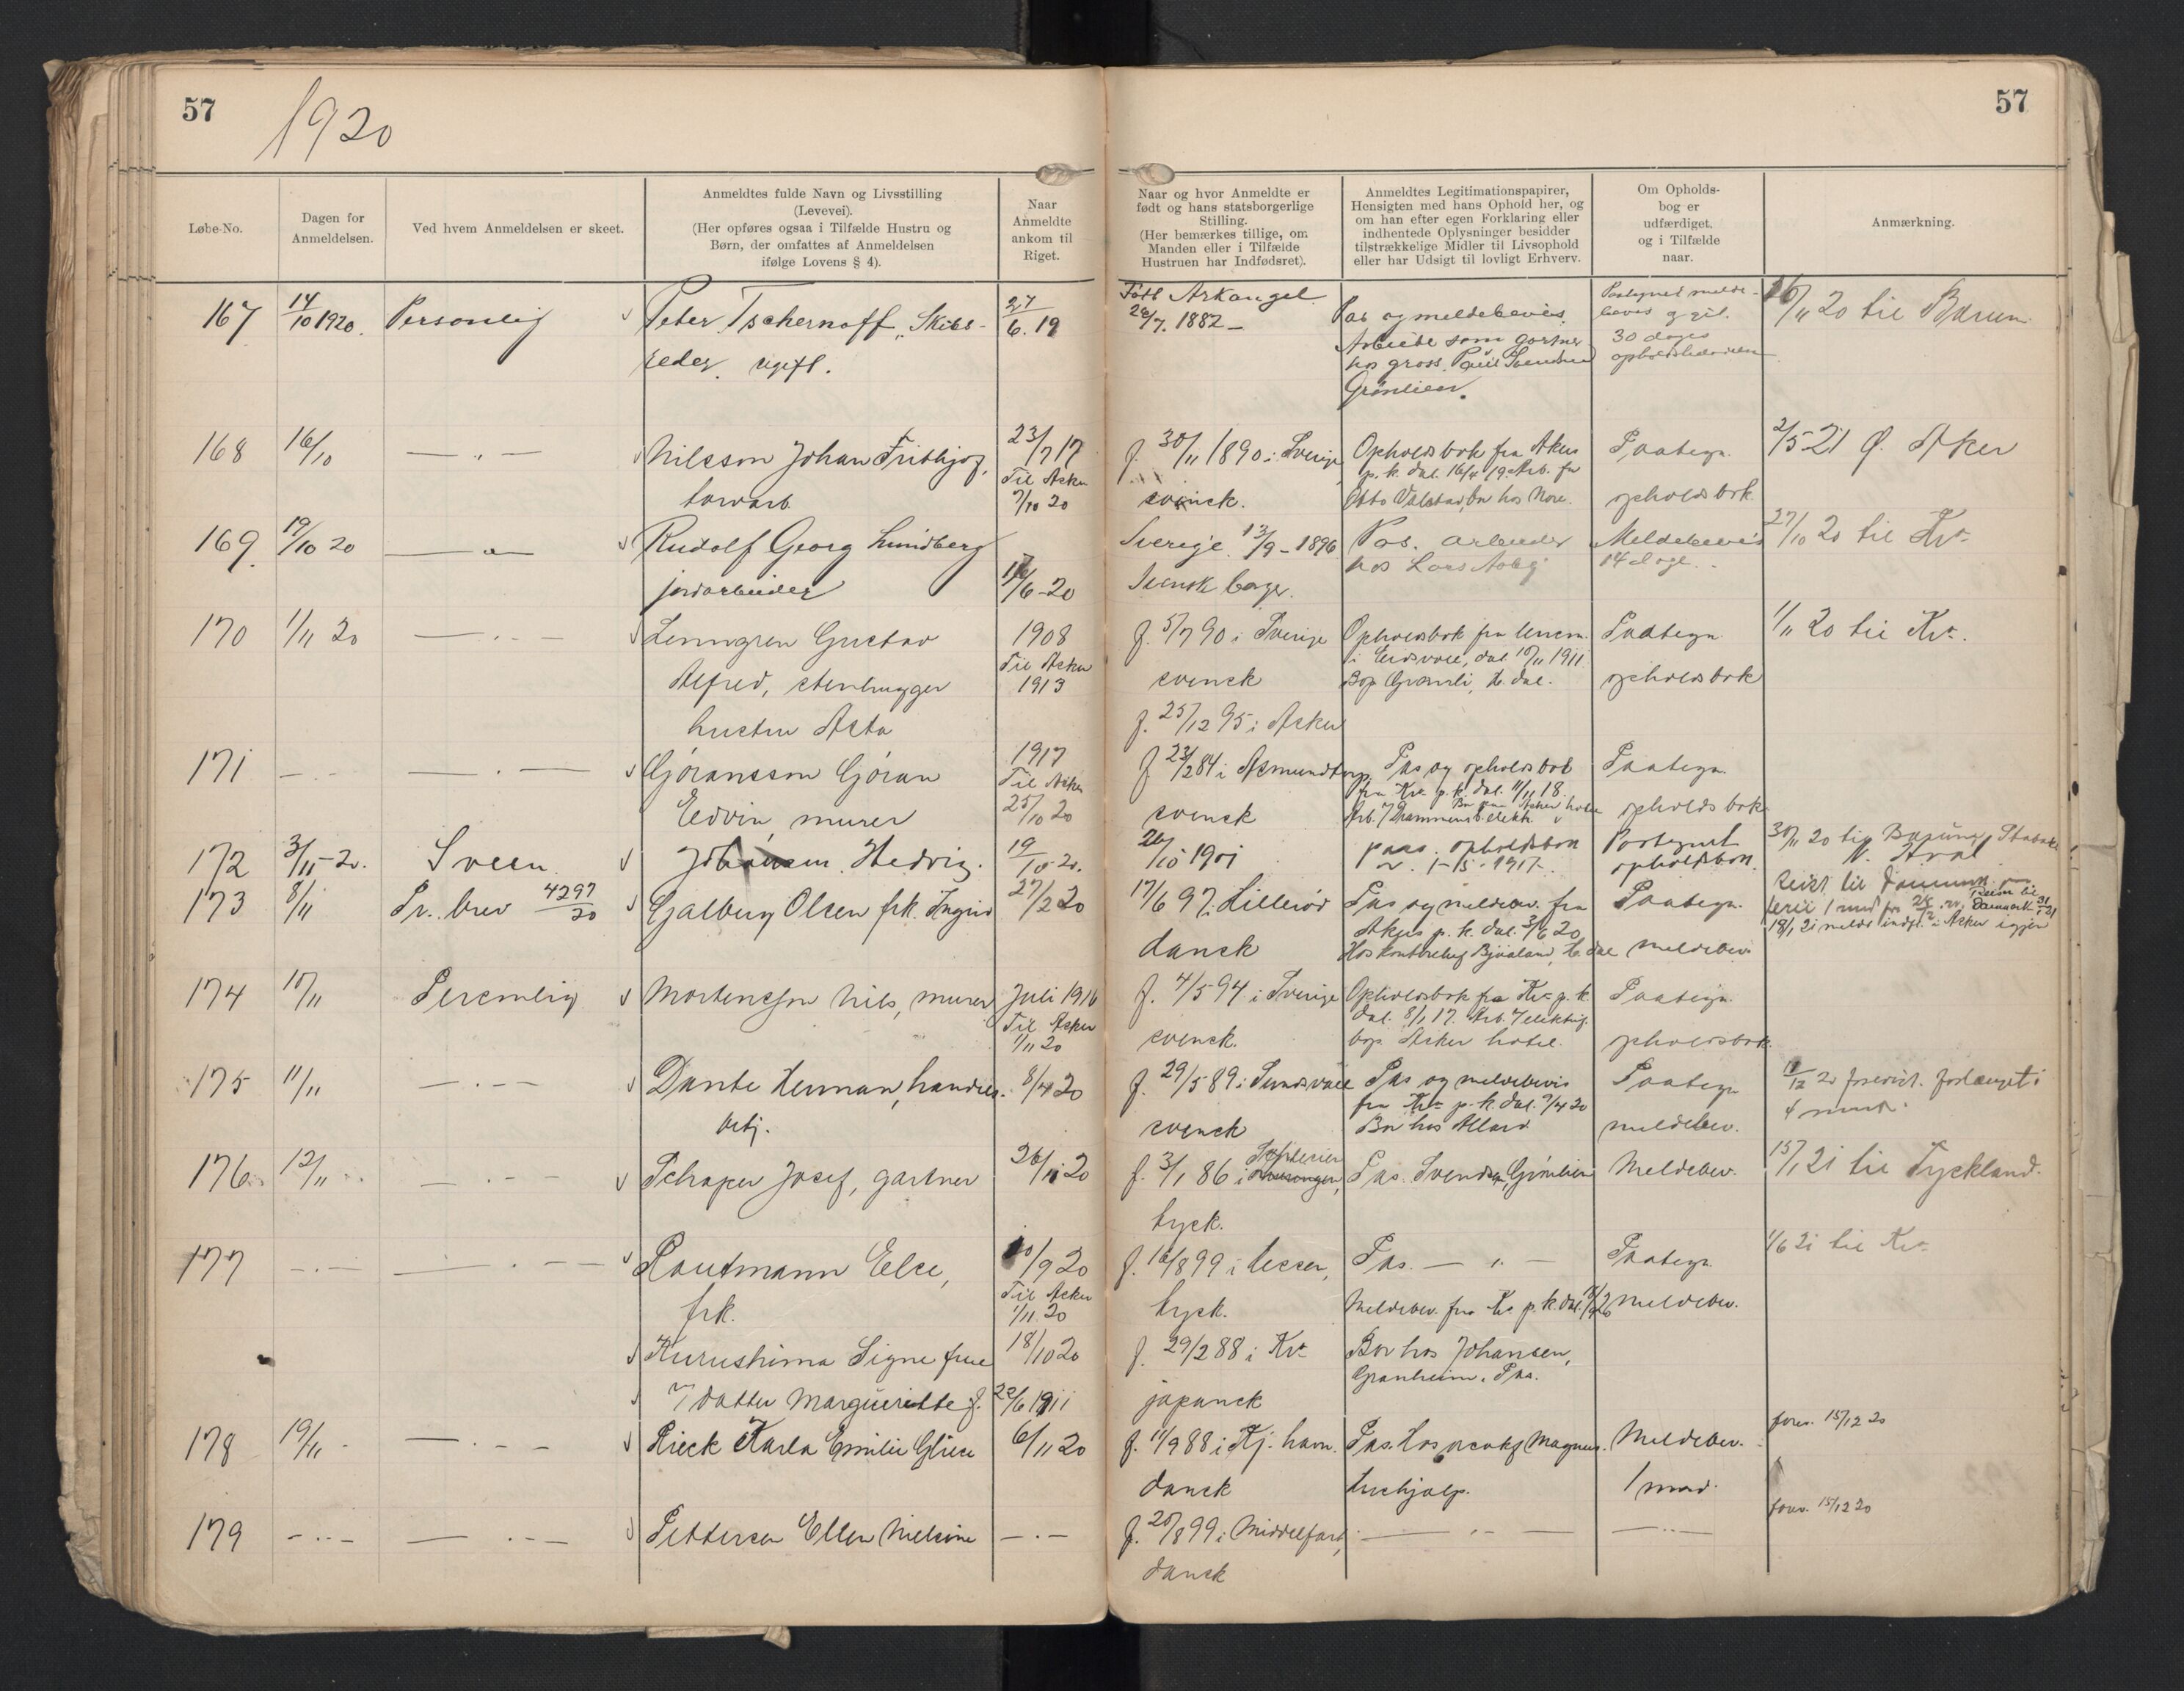 57
1920
57
Løbe-No.
Dagen for
Anmeldelsen.
Ved hvem Anmeldelsen er skeet.
Anmeldtes fulde Navn og Livsstilling
(Levevei).
(Her opføres ogsaa i Tilfælde Hustru og
Børn, der omfattes af Anmeldelsen
ifølge Lovens § 4).
Naar
Anmeldte
ankom til
Riget.
Naar og hvor Anmeldte er
født og hans statsborgerlige
Stilling.
(Her bemærkes tillige, om
Manden eller i Tilfælde
Hustruen har Indfødsret).
Anmeldtes Legitimationspapirer,
Hensigten med hans Ophold her, og
om han efter egen Forklaring eller
indhentede Oplysninger besidder
tilstrækkelige Midler til Livsophold
eller har Udsigt til lovligt Erhverv.
Om Opholds-
bog er
udfærdiget,
og i Tilfælde
naar.
Anmærkning.
167
14/10 1920.
Personlig
Peter Tschernoff, Skibs-
reder, ugift.
27/6.19
Født Arkangel
28/7. 1882 –
Pas og meldebevis.
Arbeide som gartner
hos gross. Paul Svendsen
Grønlien.
30 dages
16/11 20 til Bærum
168
16/10
— " —
Nilsson Johan Frithjof,
23/7 17
Til Asker
9/10 20
f. 30/11 1890 i Sverige
svensk.
Opholdsbok fra Akers
p. k. dat. 16/4 19. Arb. for
Otto Valstad, bor hos Nore.
Paategn.
opholdsbok.
2/5 21 Ø. Aker
169.
19/10 20
— " —
Rudolf Georg Lundberg
jordarbeider
/6-20
Sverige 13/9 – 1896
Svensk borger.
Pas. arbeider
hos Lars Aaby
Meldebevis
14 dage.
27/10 20 til Kr.a
170
1/11 20
— . . —
Lenngren Gustav
Alfred, stenhugger
hustru Asta
1908
Til Asker
1913
f. 5/7 90 i Sverige
svensk
f. 25/12 95 i Asker
Opholdsbok fra lensm.
i Eidsvold, dat. 10/11 1911.
Bop. Granli, H.dal.
Paategn.
opholdsbok
1/11 20 til Kr.a
171
— . . —
— . —
Göransson Göran
Edvin, murer
1917
Til Asker
25/10 20
f. 23/2 84 i Asmundtorp,
svensk
Pas og opholdsbok
fra Kr.a p. k. dat. 11/11 18.
Bor paa Asker hotel
Arb. v/ Drammensb. elektr.
Paategn.
opholdsbok.
172
3/11-20.
Sveen
Johansen Hedvig.
19/10 20.
26/10 1901
pass. opholdsbok
Paategnet
opholdsbok.
30/11 20 til Bærum, Stabæk
173
8/11
Pr. brev 4297/20
Gjalberg Olsen frk. Ingrid
27/2 20
17/6 97 i Hillerød
dansk
Pas og meldebev. fra
Akers p. k. dat. 3/6 20
Hos kontorchef Bjaaland, H.dal
Paategn.
meldebev.
reist til Danmark
18/1 21 meldt indfl. i Asker igjen
174
10/11
Personlig
Mortensson Nils, murer
Juli 1916
Til Asker
1/11 20
f. 4/5 94 i Sverige
svensk.
Opholdsbok fra Kr.a p. k.
dat. 8/1 17. Arb. v/ elektrif.
bop. Asker hotel.
Paategn.
opholdsbok.
175
11/11
— . —
Dante Herman, handels-
betj.
8/4 20
f. 29/5 89 i Sundsvall
svensk
Pas og meldebevis
fra Kr.a p. k. dat. 9/4 20
Bor hos Allard
Paategn
meldebev.
176
12/11
— . . —
Schaper Josef, gartner
26/10 20
f. 3/1 86 i
tysk.
Pas. Svendsen, Grønlien
Meldebev.
15/1 21 til Tyskland.
177
— . —
— . . —
Rautmann Else,
frk.
10/9 20
Til Asker
1/11 20
f. 16/8 99 i Essen,
tysk.
Pas. — " —
Meldebev. fra Kr.a p. k. dat.
Paategn.
meldebev.
1/6 21 til Kr.a
Kurushima Signe frue
18/10 20
f. 29/2 88 i Kr.a
japansk
Bor hos Johansen,
Granheim. Pas.
datter Margueritte f. 22/6 1911
178
19/11
— . . —
Rieck Karla Emilie Gjise
6/11 20
f. 11/9 88 i Kj.havn.
dansk
Pas. Hos Magnus.
hushjælp.
Meldebev.
1 maa.
forev. 15/12 20
179
— . . —
— . . —
Pettersen Ellen Nielsine
— . —
f. 20/8 99 i Middelfart,
dansk
— " —
— . . —
forev. 15/12 20